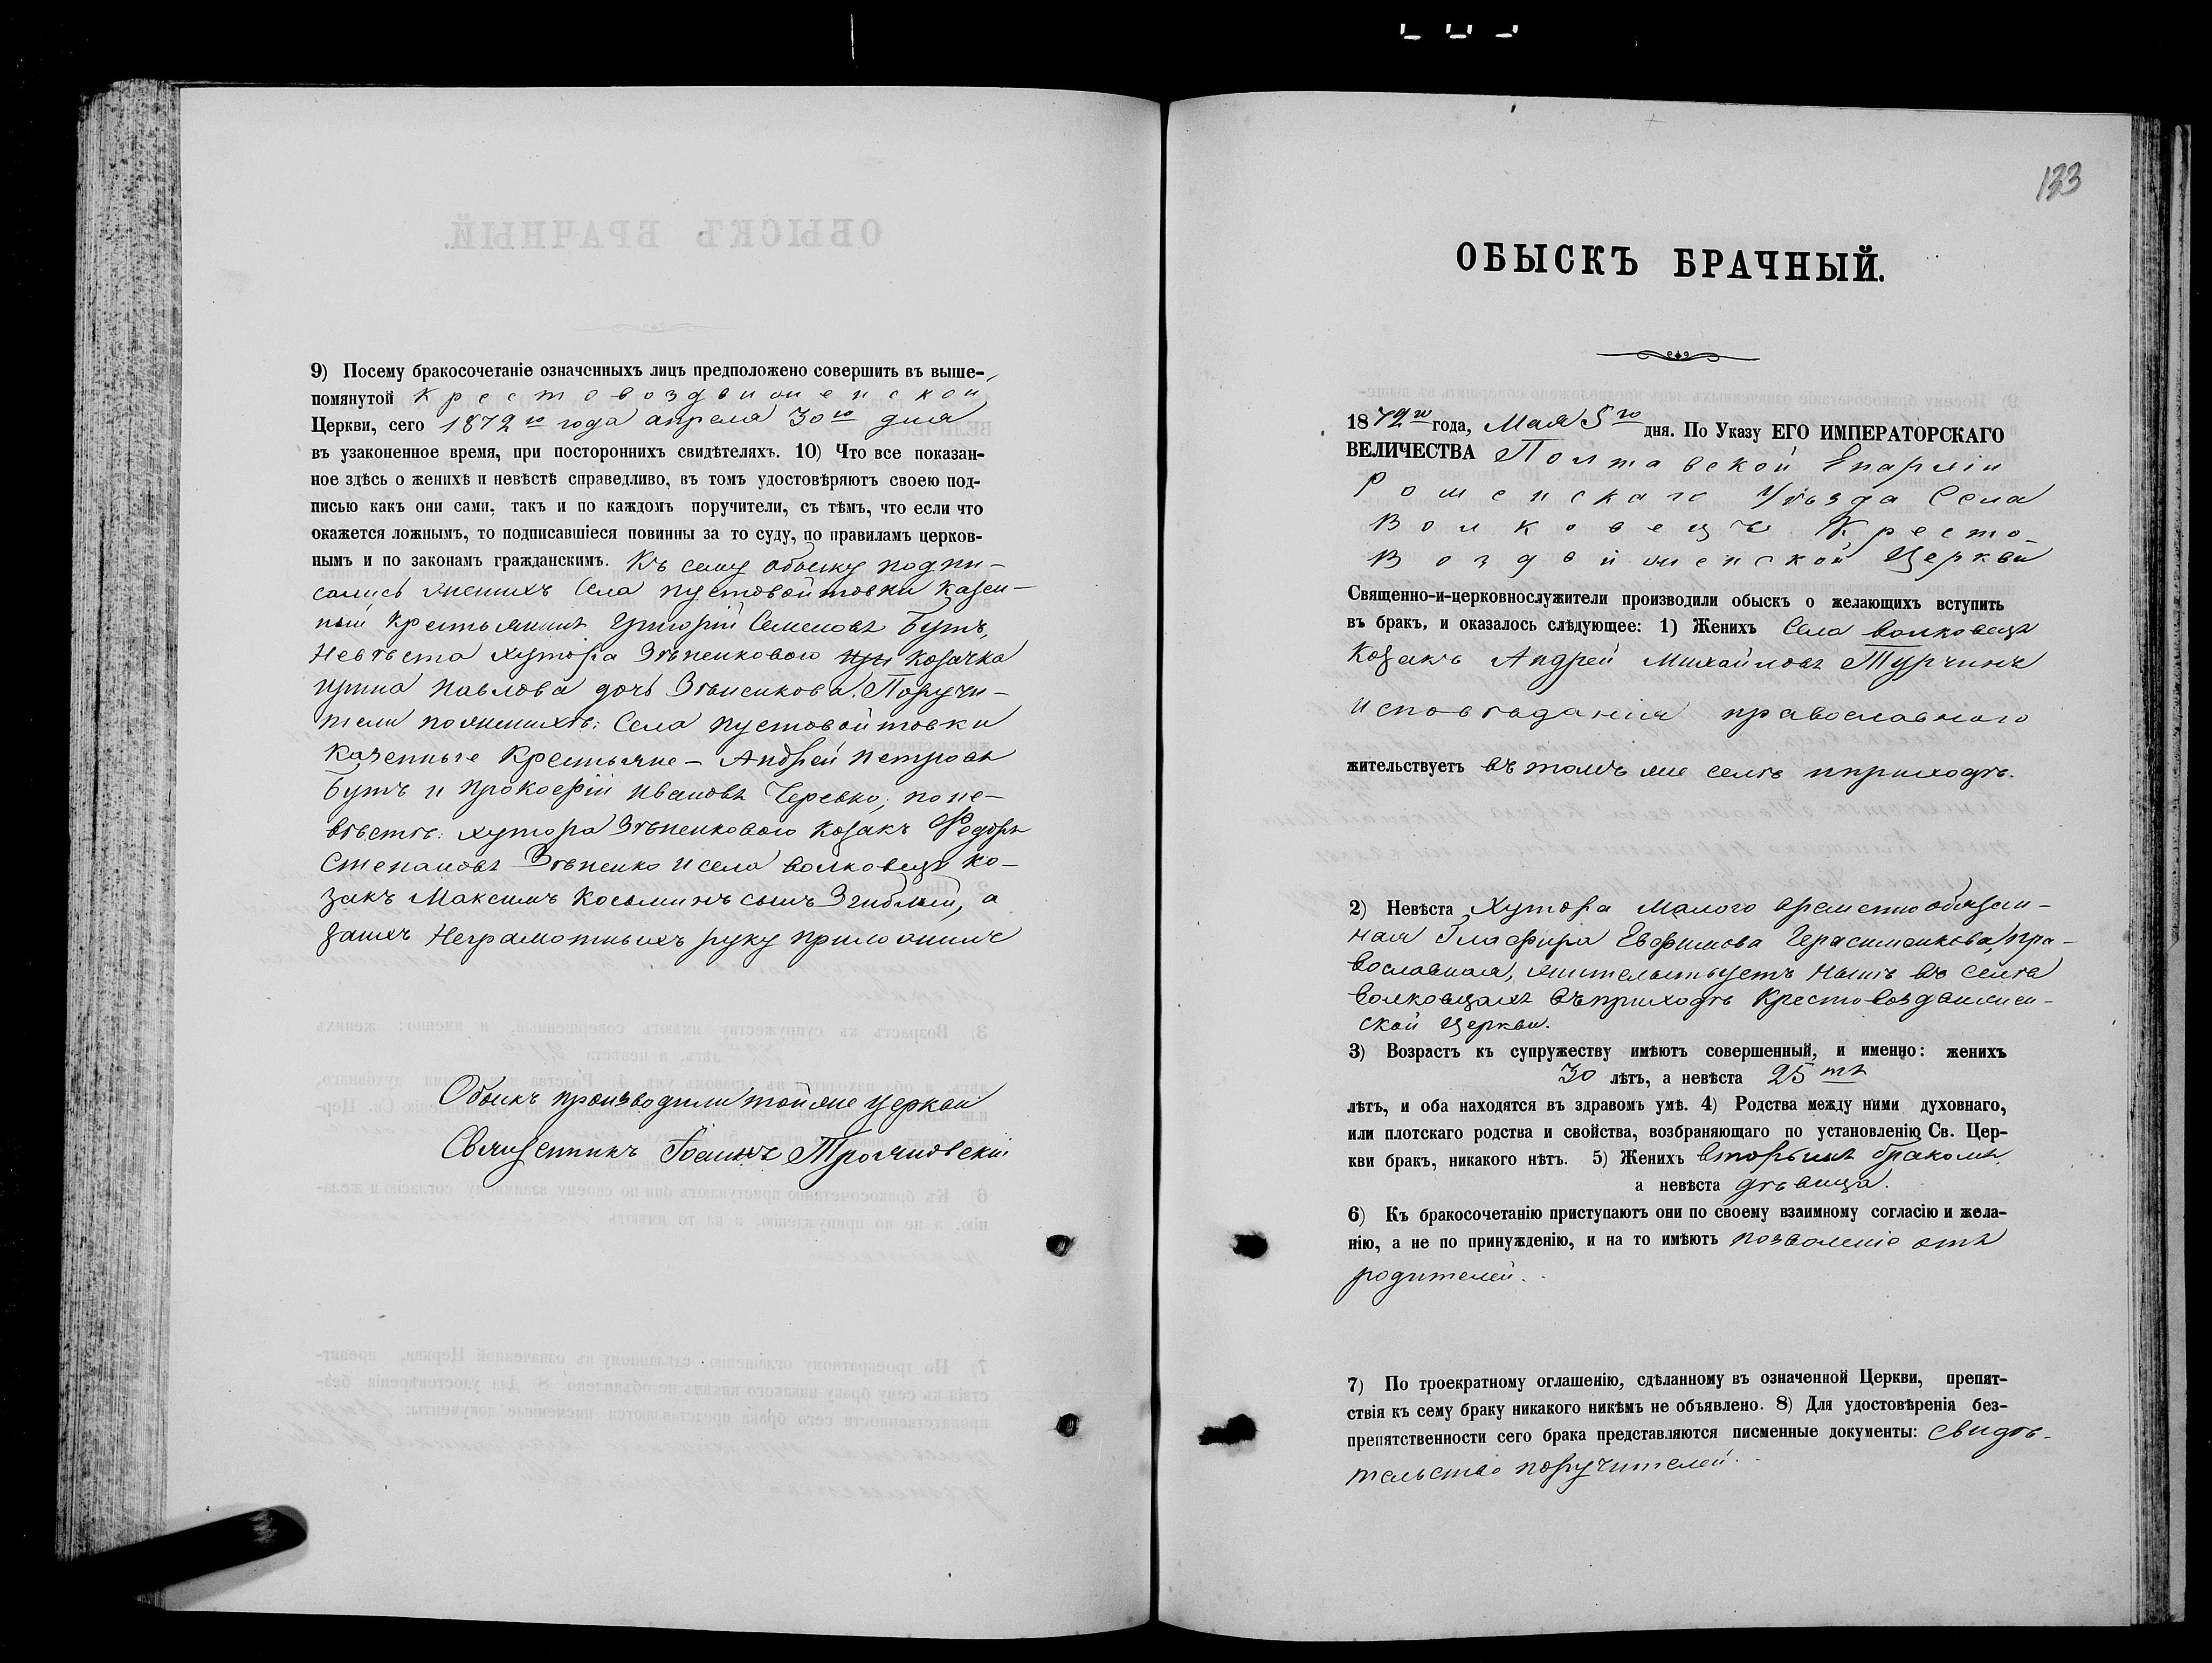 9) Посему бракосочетаніе означенныхъ лицъ предположено совершить въ выше-
помянутой Крестовоздвиженской
Церкви, сего 1872го года апреля 30го дня
въ узаконенное время, при постороннихъ свидѣтеляхъ. 10) Что все показан-
ное здѣсь о женихѣ и невѣстѣ справедливо, въ томъ удостовѣряютъ своею под-
писью какъ они сами, такъ и по каждомъ поручители, съ тѣмъ, что если что
окажется ложнымъ, то подписавшіеся повинны за то суду, по правиламъ церков-
нымъ и по законамъ гражданскимъ. Къ сему обыску подпи-
сались женихъ Села пустовойтовки казен-
ный Крестьянинъ Григорій Семеновъ Бутъ,
Невѣста хутора Зѣненкового козачка
ирина павлова дочь Зѣненкова. Поручи-
тели пожениxѣ: Села пустовойтовки
казенные Крестьяне – Андрей петровъ
Бутъ и прокофій ивановъ Черевко; поне-
вѣстѣ: хутора Зѣненкового козакъ Федоръ
Степановъ Зѣненко и села волковецъ ко-
закъ Максимъ Косьминъ сынъ Згиблый, а
заних Неграмотныхъ руку приложилъ
Обыкъ производили тойже церкви
Священникъ Іоаннъ Трояновскій
133
ОБЫСКЪ БРАЧНЫЙ.
1872го года, Мая 5го дня. По Указу ЕГО ИМПЕРАТОРСКАГО
ВЕЛИЧЕСТВА Полтавской Епархіи
Роменскаго Уѣзда Села
Волковецъ Кресто-
Воздвиженской Церкви
Священно-и-церковнослужители производили обыскъ о желающихъ вступить
въ бракъ, и оказалось слѣдующее: 1) Женихъ Села волковецъ
Козакъ Андрей Михайловъ Турчинъ
исповѣданія православного
жительствуетъ въ томъ же селѣ иприходѣ.
2) Невѣста Хутора Малого временнообязан-
ная Глафира Евфимова Герасименкова, пра-
вославная, жительствуетъ нынѣ въ селѣ
волковцахъ въприходѣ Крестовоздвижен-
ской церкви.
3) Возрастъ къ супружеству имѣютъ совершенный, и именно: женихъ
30 лѣтъ, а невѣста 25ть
лѣтъ, и оба находятся въ здравомъ умѣ. 4) Родства между ними духовнаго,
или плотскаго родства и свойства, возбраняющаго по установленію Св. Цер-
кви бракъ, никакого нѣтъ. 5) Женихъ вторымъ бракомъ,
а невѣста дѣвица.
6) Къ бракосочетанію приступаютъ они по своему взаимному согласію и жела-
нію, а не по принужденію, и на то имѣютъ позволеніе отъ
родителей.
7) По троекратному оглашенію, сдѣланному въ означенной Церкви, препят-
ствія къ сему браку никакого никѣмъ не объявлено. 8) Для удостовѣренія без-
препятственности сего брака представляются писменные документы: Свидѣ-
тельство поручителей.